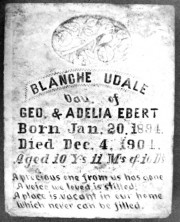 BLANCHE UDALE
Dau. of
GEO. & ADELIA EBERT
Born Jan. 20, 1894.
Died Dec. 4, 1904.
Aged 10 Ys 11 Ms
A precious one from us has gone
A voice we loved is stilled,
A place is vacant in our home
Which never can be filled.